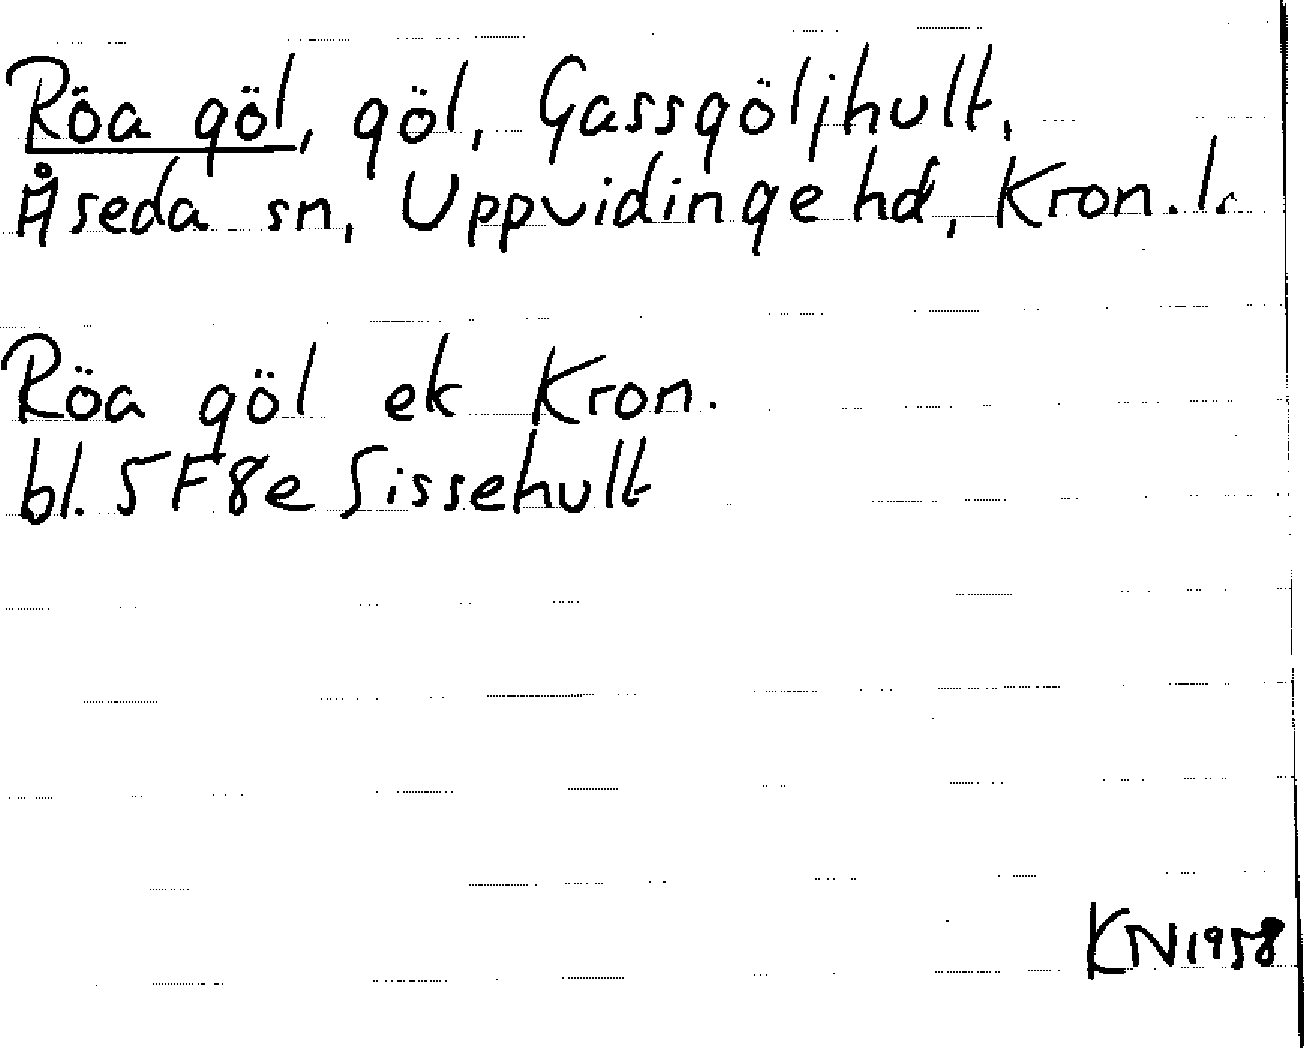 Röa göl, göl, Gassgöljhult,
Åseda sn, Uppvidinge hd, Kron. l.
Röa göl ek Kron.
bl. 5F8e Sissehult
KN1958